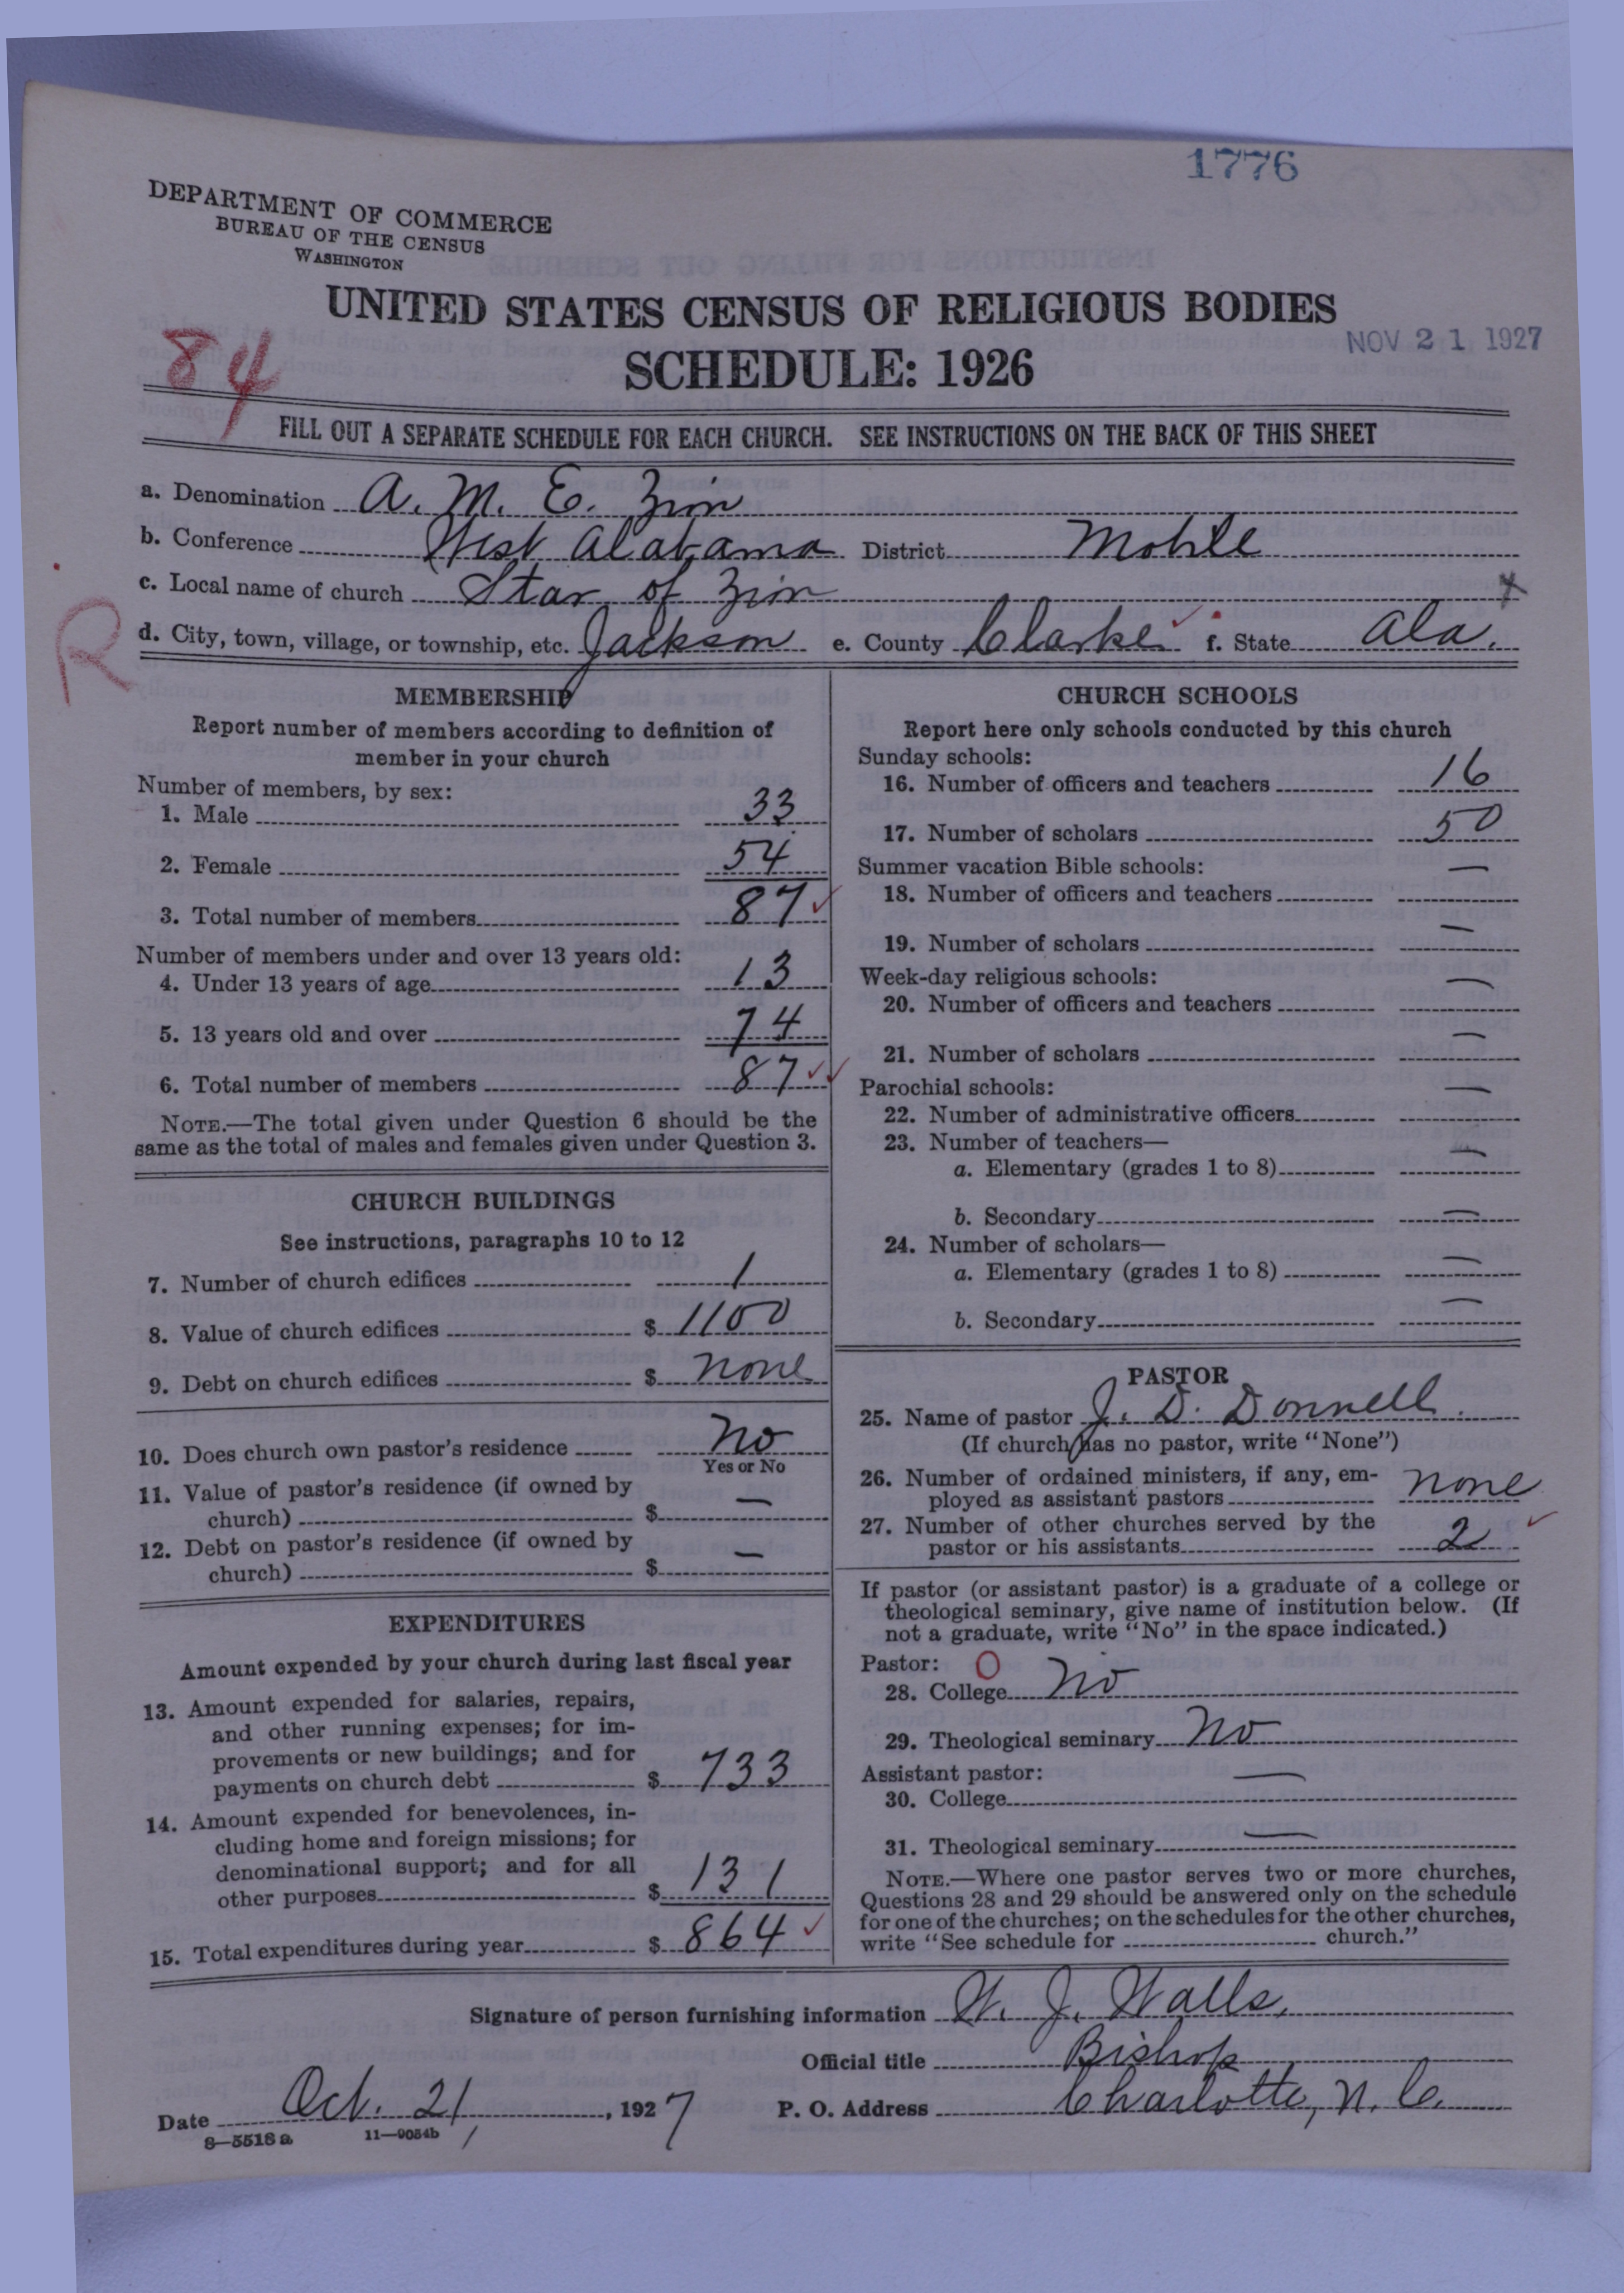 1776
DEPARTMENT OF COMMERCE
BUREAU OF THE CENSUS
WASHINGTON
UNITED STATES CENSUS OF RELIGIOUS BODIES
NOV 21 1927
SCHEDULE: 1926
84
FILL OUT A SEPARATE SCHEDULE FOR EACH CHURCH. SEE INSTRUCTIONS ON THE BACK OF THIS SHEET
a. Denomination A. M. E. Zion
b. Conference West Alabama District Mobile
c. Local name of church Star of Zion x
R
d. City, town, village, or township, etc. Jackson e. County Clarke f. State Ala.
MEMBERSHIP
Report number of members according to definition of
member in your church
Number of members, by sex:
1. Male 33
2. Female 54
3. Total number of members 87
Number of members under and over 13 years old:
4. Under 13 years of age 13
5. 13 years old and over 74
6. Total number of members 87
NOTE.—The total given under Question 6 should be the
same as the total of males and females given under Question 3.
CHURCH BUILDINGS
See instructions, paragraphs 10 to 12
7. Number of church edifices 1
8. Value of church edifices $ 1100
9. Debt on church edifices $ none
10. Does church own pastor's residence No
Yes or No
11. Value of pastor's residence (if owned by
church) $ —
12. Debt on pastor's residence (if owned by
church) $ —
EXPENDITURES
Amount expended by your church during last fiscal year
13. Amount expended for salaries, repairs,
and other running expenses; for im-
provements or new buildings; and for
payments on church debt $ 733
14. Amount expended for benevolences, in-
cluding home and foreign missions; for
denominational support; and for all
other purposes $ 131
15. Total expenditures during year $ 864
CHURCH SCHOOLS
Report here only schools conducted by this church
Sunday schools:
16. Number of officers and teachers 16
17. Number of scholars 50
Summer vacation Bible schools:
18. Number of officers and teachers —
19. Number of scholars —
Week-day religious schools:
20. Number of officers and teachers —
21. Number of scholars —
Parochial schools:
22. Number of administrative officers —
23. Number of teachers—
a. Elementary (grades 1 to 8) —
b. Secondary —
24. Number of scholars—
a. Elementary (grades 1 to 8) —
b. Secondary —
PASTOR
25. Name of pastor J. D. Donnell.
(If church has no pastor, write "None")
26. Number of ordained ministers, if any, em-
ployed as assistant pastors none
27. Number of other churches served by the
pastor or his assistants 2
If pastor (or assistant pastor) is a graduate of a college or
theological seminary, give name of institution below. (If
not a graduate, write "No" in the space indicated.)
Pastor: O
28. College No
29. Theological seminary No
Assistant pastor:
30. College —
31. Theological seminary —
NOTE.—Where one pastor serves two or more churches,
Questions 28 and 29 should be answered only on the schedule
for one of the churches; on the schedules for the other churches,
write "See schedule for church."
Signature of person furnishing information W. J. Walls,
Official title Bishop
Date Oct. 21, 1927 P. O. Address Charlotte, N. C.
8—5518 a 11—9054b